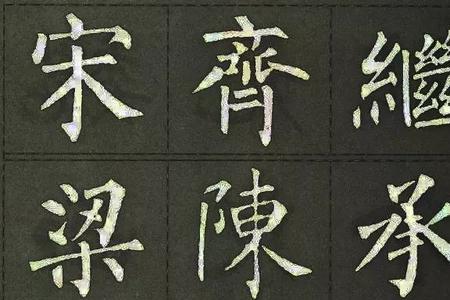 宋齊繼
梁陳承